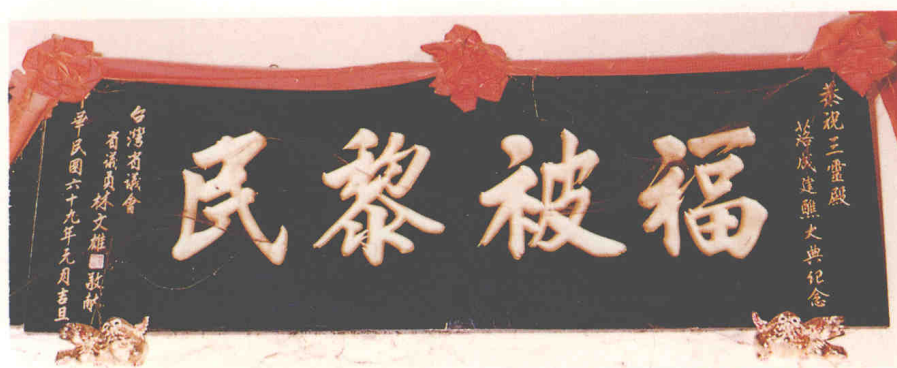 恭祝三靈殿
落成建醮大典紀念
福被黎民
台灣省議會
省議員林文雄敬献
華民國六十九年元月吉旦